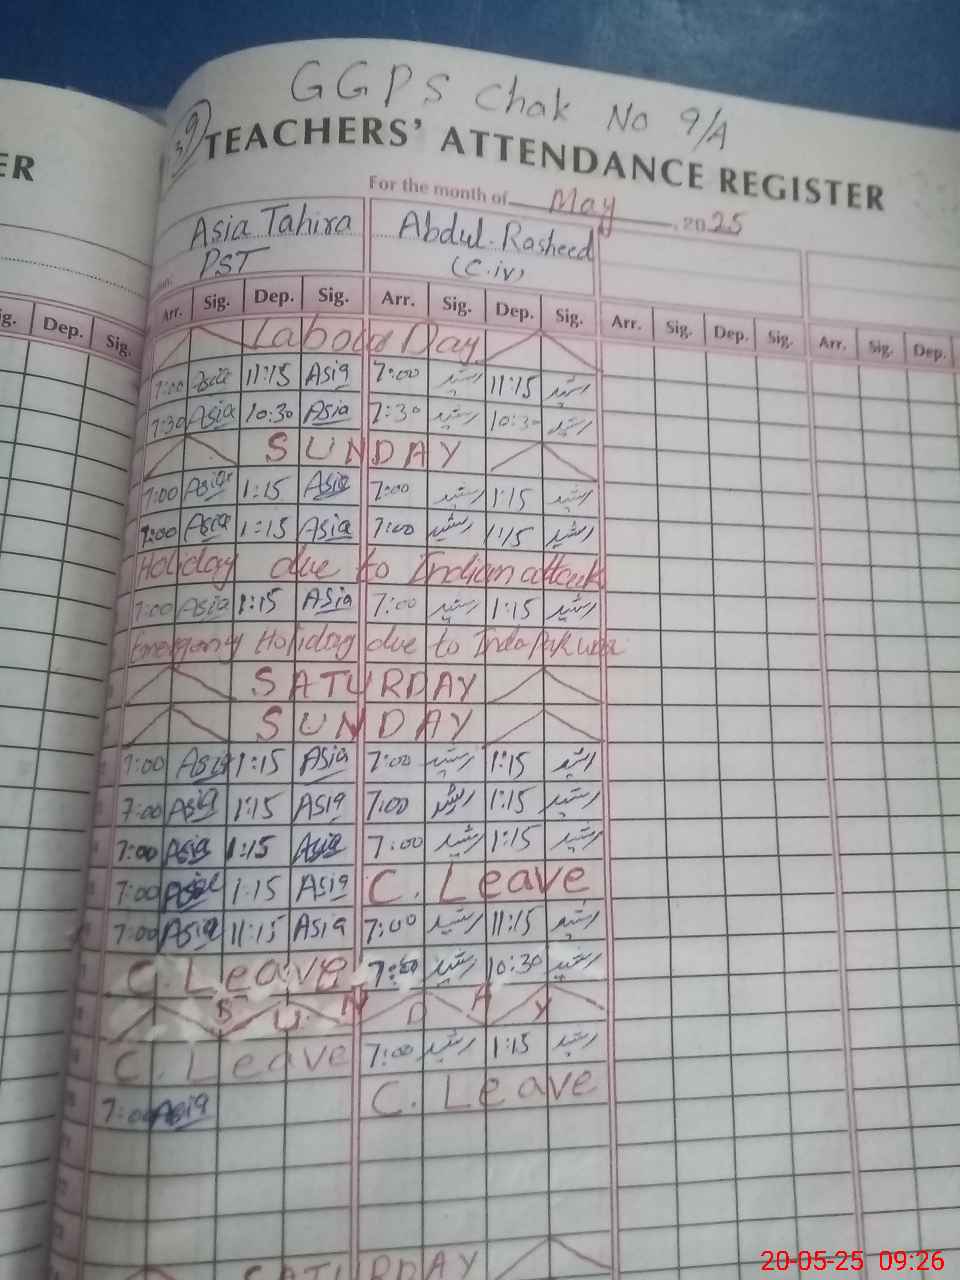 GGPS Chak No 9/A
39
TEACHERS' ATTENDANCE REGISTER
ER
For the month of May 2025
Asia Tahira Abdul. Rasheed
PST (C.iv)
ig. Dep. Sig. Arr. Sig. Dep. Sig. Arr. Sig. Dep. Sig. Arr. Sig. Dep. Sig. Arr. Sig. Dep.
Labour Day
7:00 Asia 11:15 Asia 7:00 رشید 11:15 رشید
7:30 Asia 10:30 Asia 7:30 رشید 10:30 رشید
SUNDAY
7:00 Asia 1:15 Asia 7:00 رشید 1:15 رشید
7:00 Asia 1:15 Asia 7:00 رشید 1:15 رشید
Holiday due to Indian attack
7:00 Asia 1:15 Asia 7:00 رشید 1:15 رشید
Emergency Holiday due to Indo Pak war
SATURDAY
SUNDAY
7:00 Asia 1:15 Asia 7:00 رشید 1:15 رشید
7:00 Asia 1:15 Asia 7:00 رشید 1:15 رشید
7:00 Asia 1:15 Asia 7:00 رشید 1:15 رشید
7:00 Asia 1:15 Asia C. Leave
7:00 Asia 11:15 Asia 7:00 رشید 11:15 رشید
C. Leave 7:00 رشید 10:30 رشید
SUNDAY
C. Leave 7:00 رشید 1:15 رشید
7:00 Asia C. Leave
SATURDAY
20-05-25 09:26